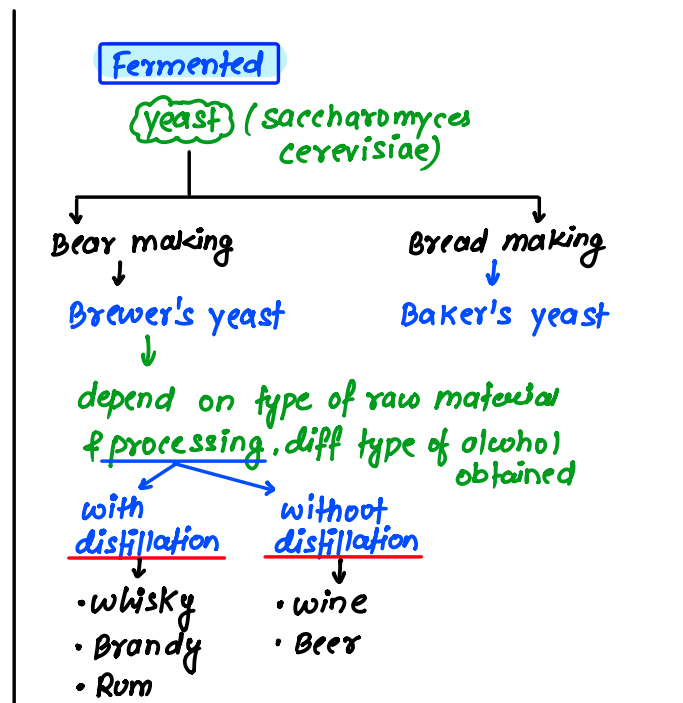 Fermented
yeast (saccharomyces
cerevisiae)
Bear making
Bread making
Brewer's yeast
Baker's yeast
depend on type of raw material
& processing, diff type of alcohol
obtained
with
distillation
without
distillation
• Whisky
• Brandy
• Rum
• Wine
• Beer